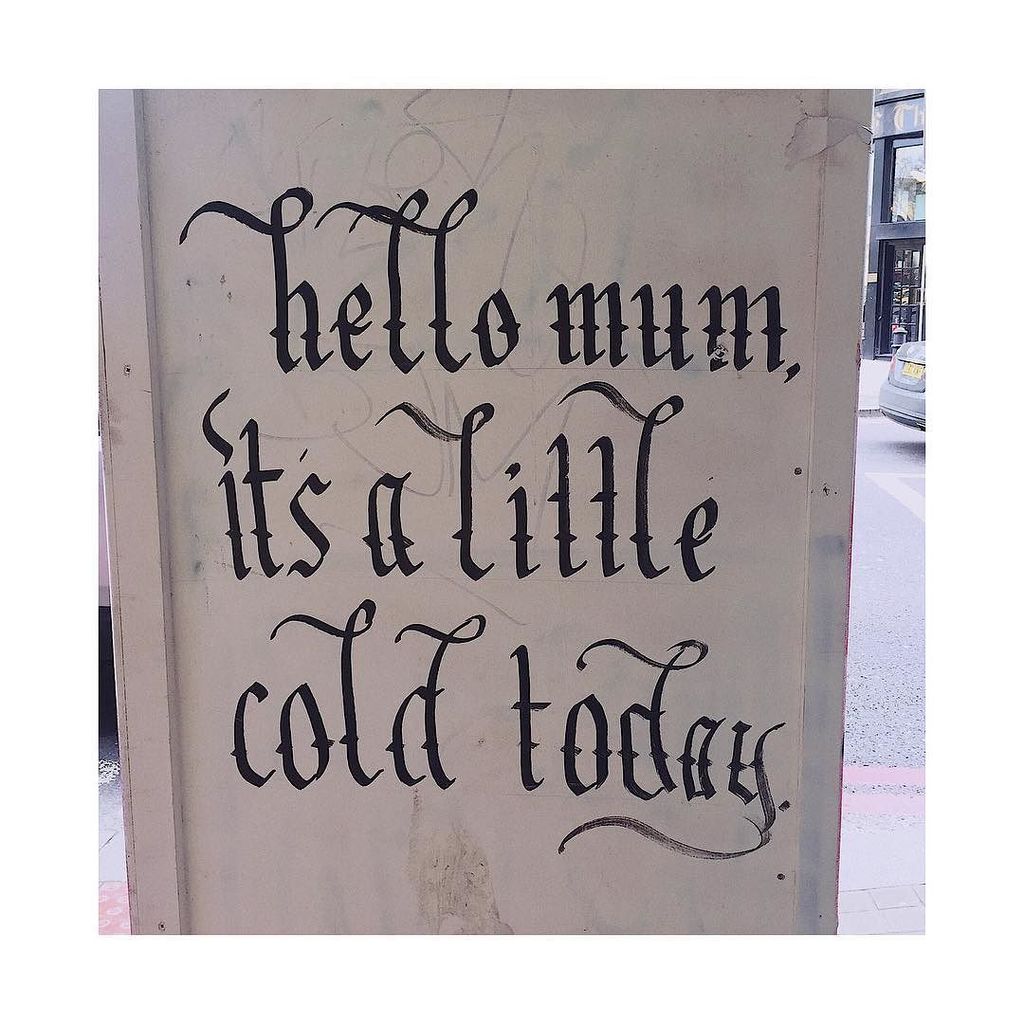 hello mum,
it's a little
cold today.